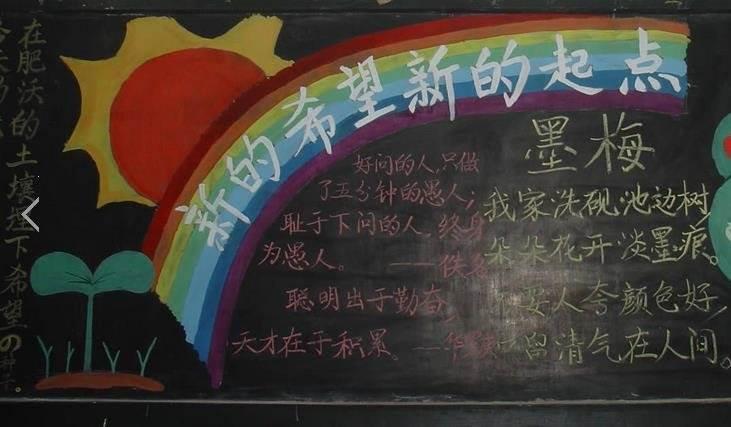 新的希望新的起点
在肥沃的土壤下希望の种子。
好问的人,只做
了五分钟的愚人;
耻于下问的人,终身
为愚人。——佚名
聪明出于勤奋,
天才在于积累。——华
墨梅
我家洗砚池边树,
朵朵花开淡墨痕。
要人夸颜色好,
留清气在人间。